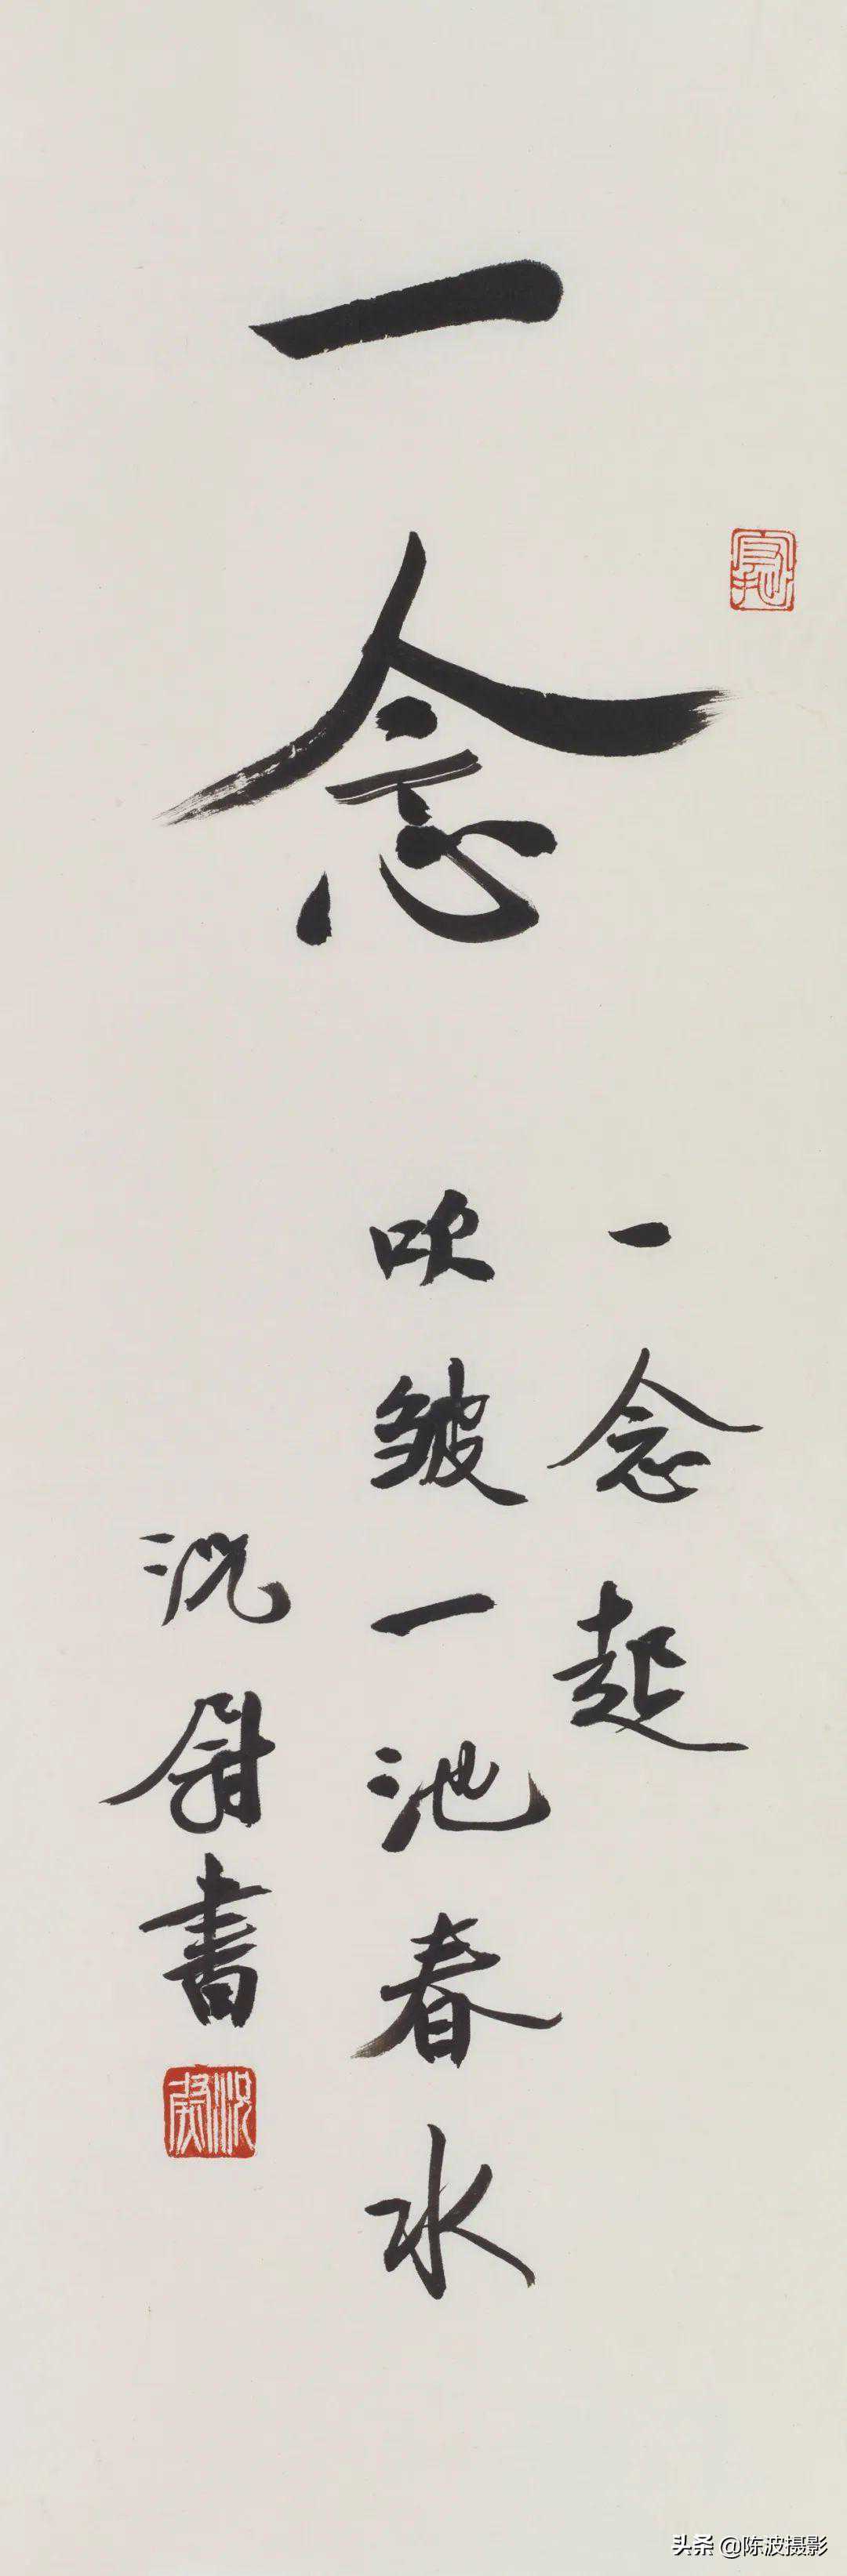 一念
一念起
吹皱一池春水
况尉書
头条 @陈波摄影